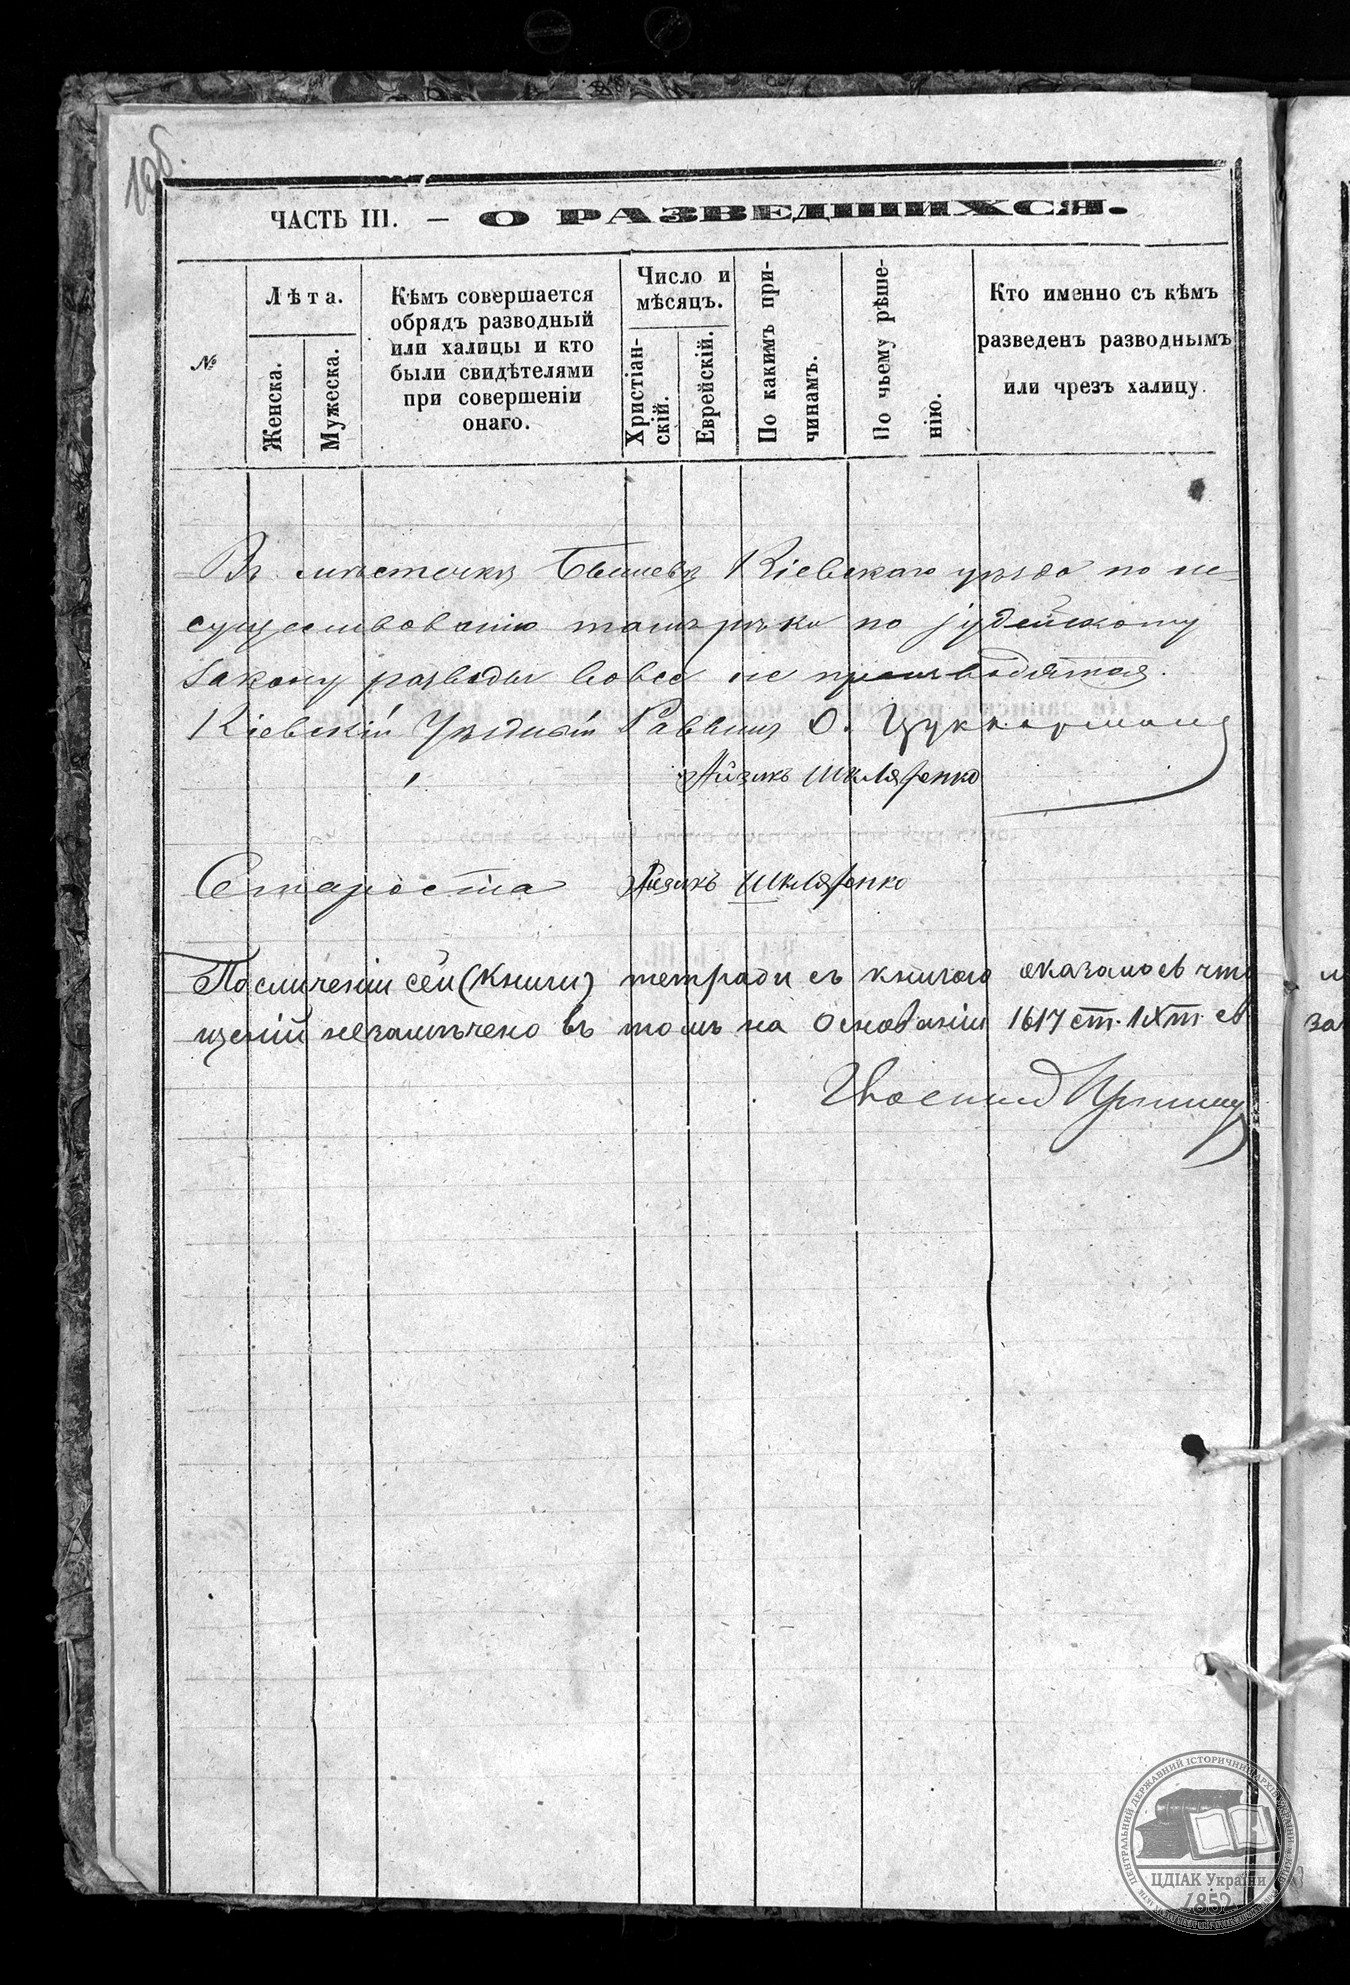 10б.
ЧАСТЬ III. — О РАЗВЕДШИХСЯ.
№
Лѣта.
Женска.
Мужеска.
Кѣмъ совершается
обрядъ разводный
или халицы и кто
были свидѣтелями
при совершеніи
онаго.
Число и
мѣсяцъ.
Христіан-
скій.
Еврейскій.
По какимъ при-
чинамъ.
По чьему рѣше-
нію.
Кто именно съ кѣмъ
разведенъ разводнымъ
или чрезъ халицу.
Въ мѣстечкѣ Бышевѣ Кіевскаго уѣзда по не-
существованію тамъ рѣки по іудейскому
закону разводы вовсе не производятся.
Кіевскій Уѣздный Раввинъ О. Цуккерманъ
Айзикъ Шкляренко
Староста Айзикъ Шкляренко
По сличеніи сей (книги) тетради съ книгою оказалось что
щеній незамѣчено въ томъ на основаніи 1617 ст. IX т. св
за
ЦДІАК України
1852